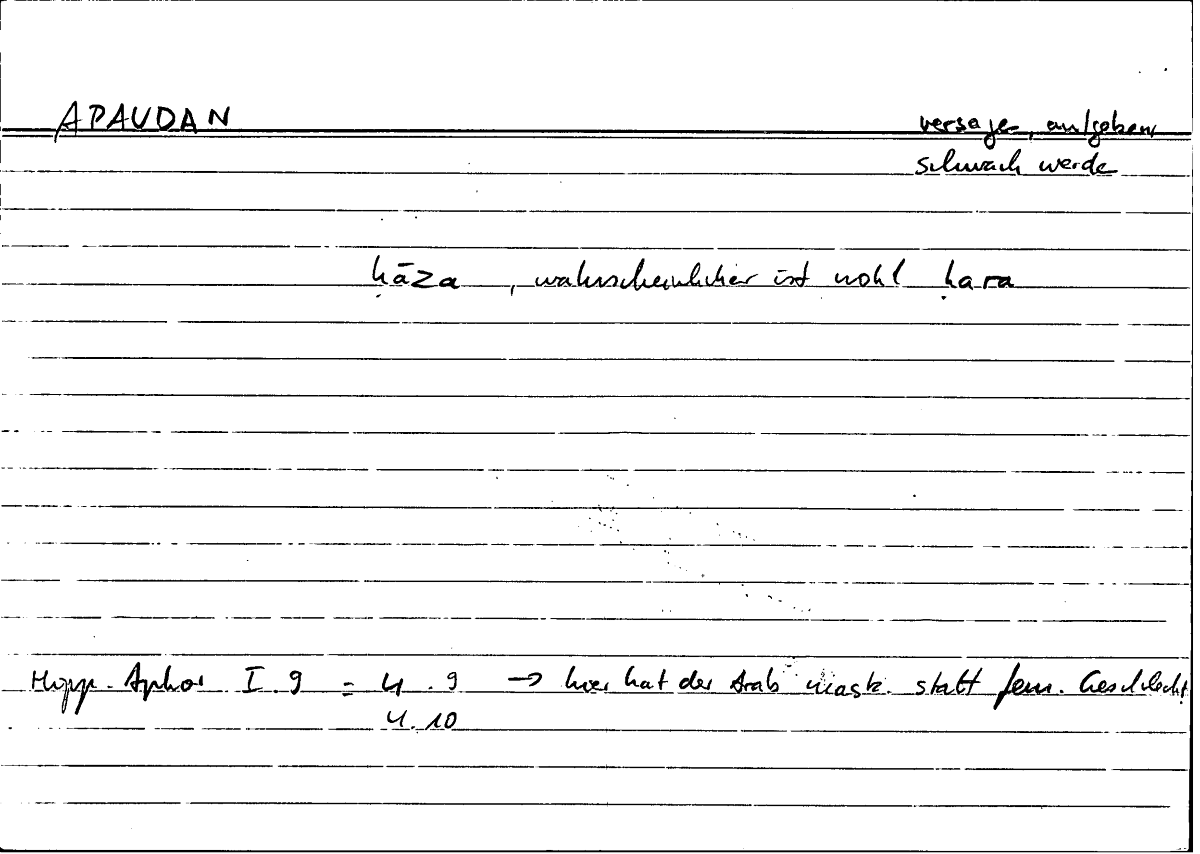 APAUDAN
versagen, aufgeben,
schwach werden
ḫāza, wahrscheinlicher ist wohl ḥara
Hipp. Aphor I 9 = 4.9 → hier hat der Arab mask. statt fem. Geschlecht
4.10